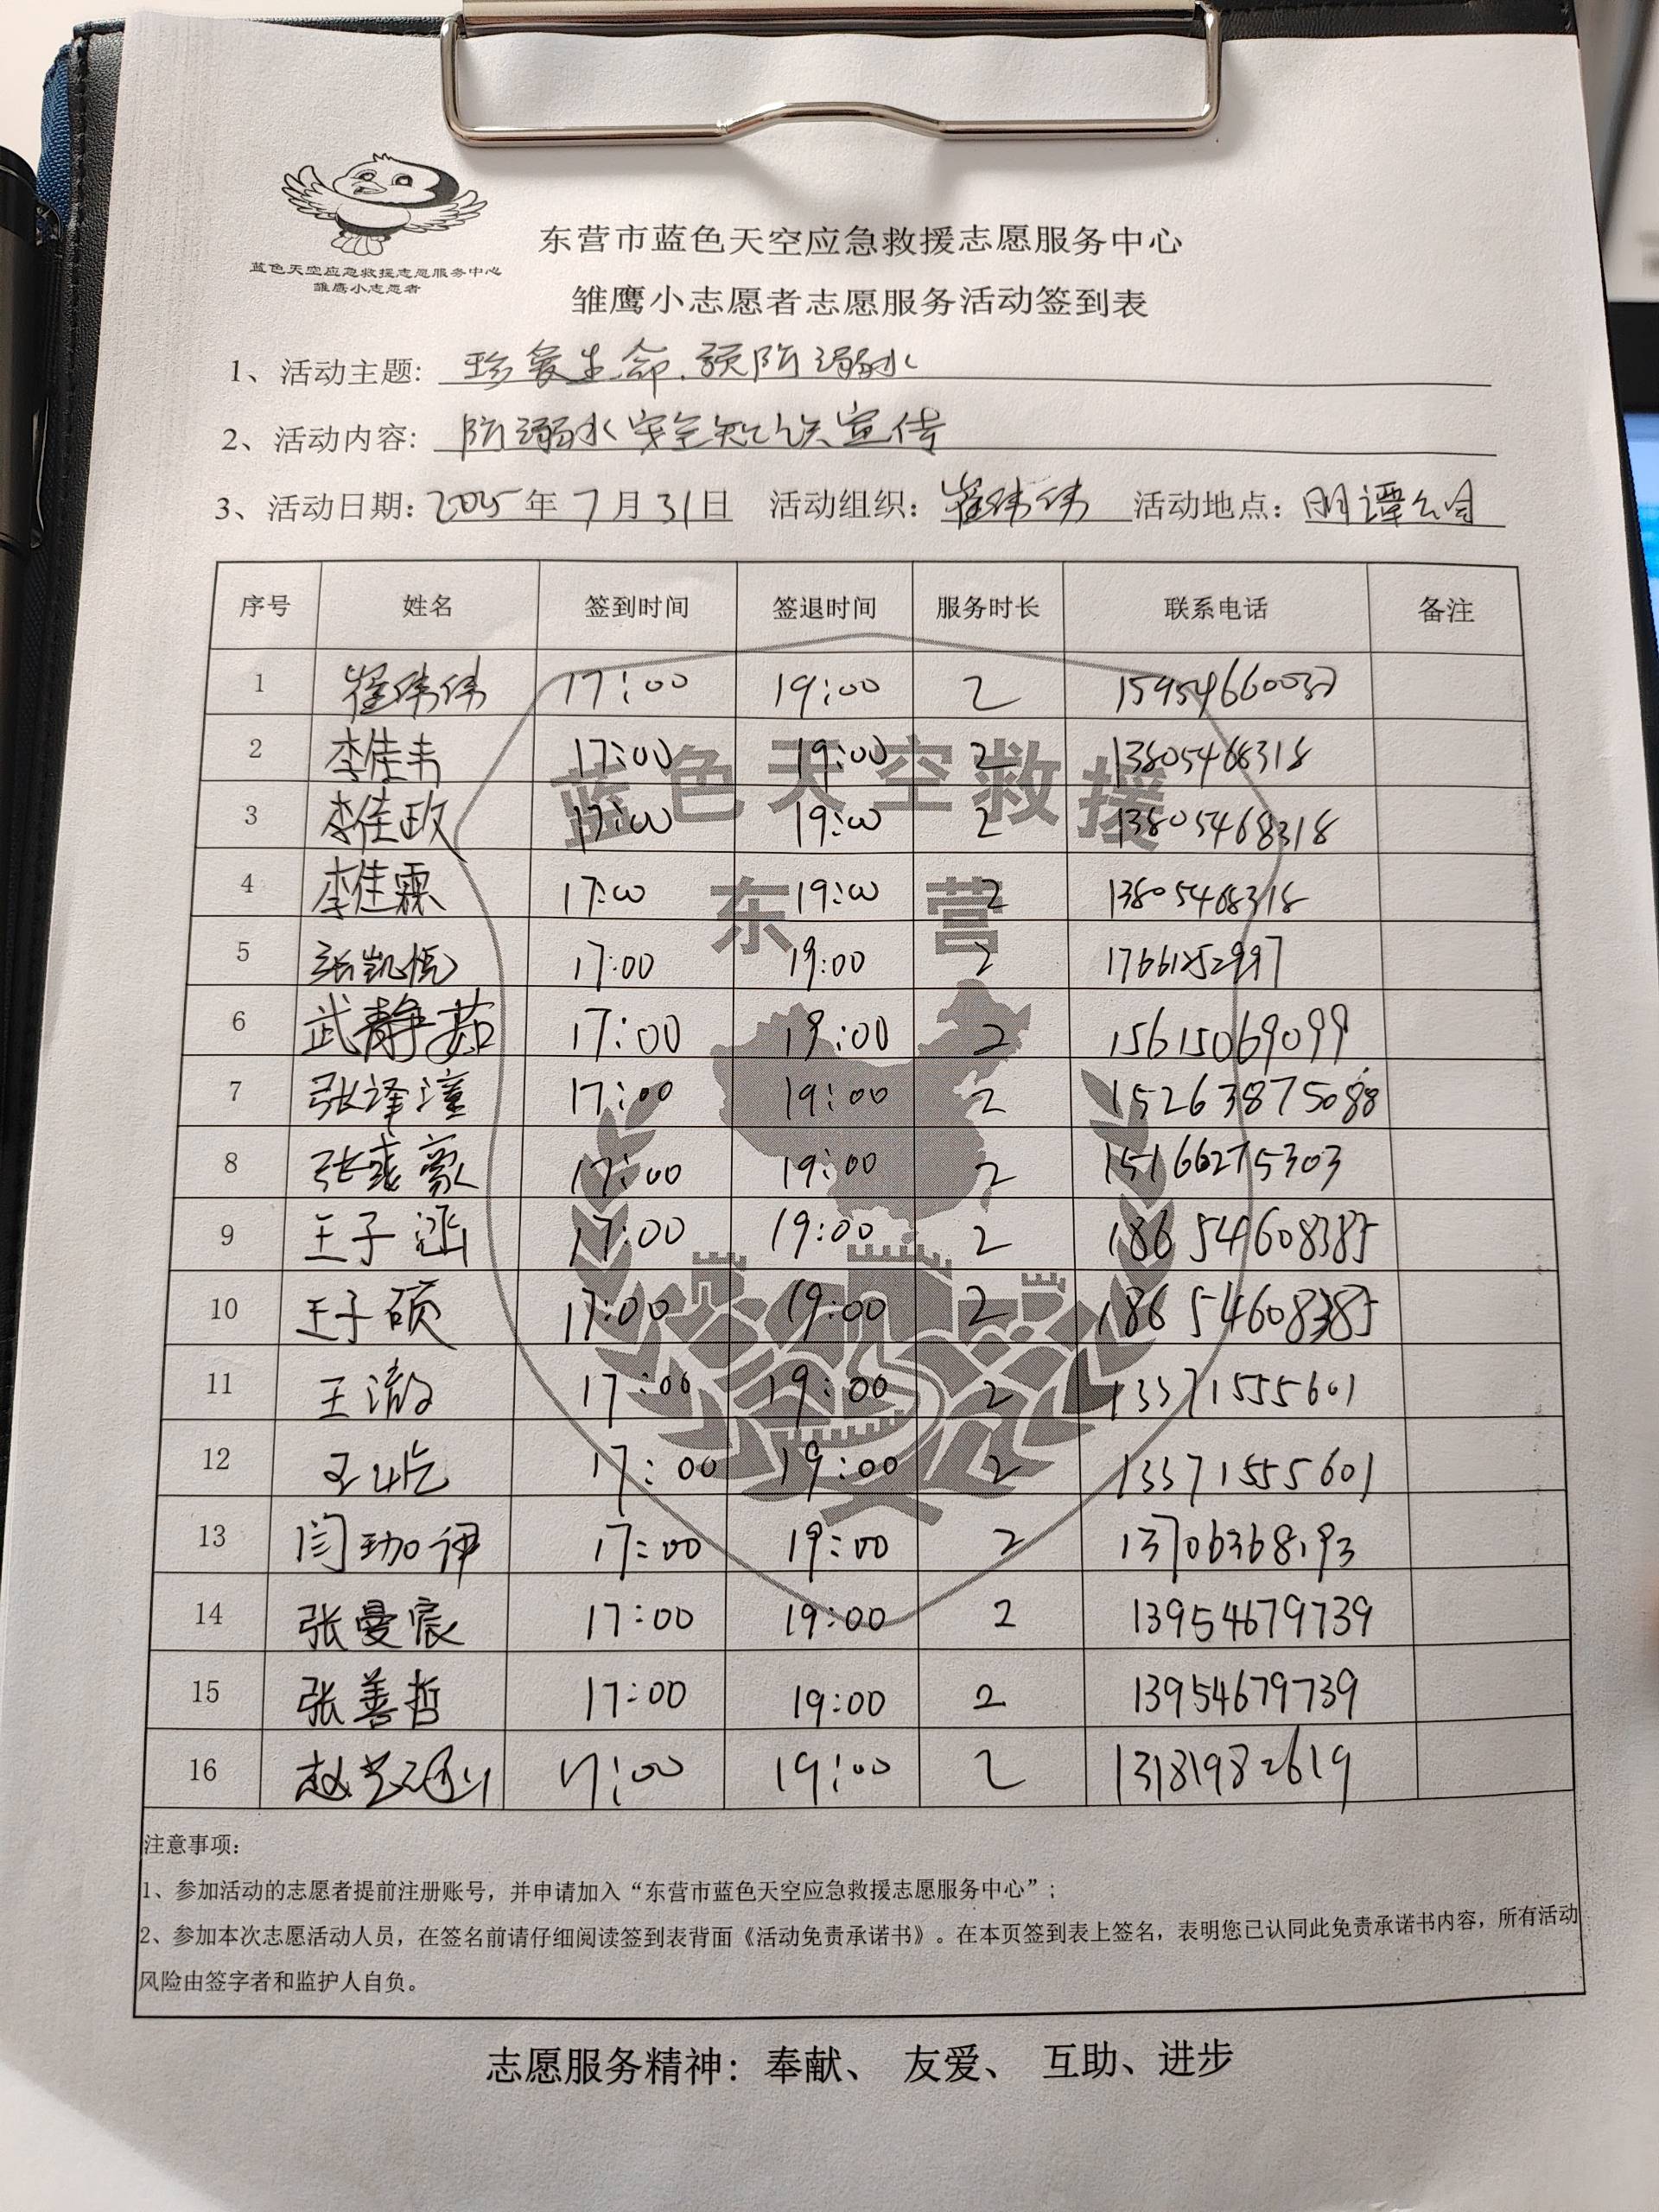 蓝色天空应急救援志愿服务中心
雏鹰小志愿者
东营市蓝色天空应急救援志愿服务中心
雏鹰小志愿者志愿服务活动签到表
1、活动主题：珍爱生命.预防溺水
2、活动内容：防溺水安全知识宣传
3、活动日期：2025年7月31日 活动组织：崔伟伟 活动地点：明潭公园
序号 姓名 签到时间 签退时间 服务时长 联系电话 备注
1 崔伟伟 17:00 19:00 2
2 李佳韦 17:00 19:00 2 13805468318
3 李佳政 17:00 19:00 2 13805468318
4 李佳霖 17:00 19:00 2 13805468318
5 张凯悦 17:00 19:00 2 17661252997
6 武静茹 17:00 19:00 2 15615069099
7 张译潼 17:00 19:00 2
8 张彧豪 17:00 19:00 2 15166275303
9 王子涵 17:00 19:00 2 18654608385
10 王子硕 17:00 19:00 2 18654608385
11 王澈 17:00 19:00 2 13371555601
12 王屹 17:00 19:00 2 13371555601
13 闫珈伊 17:00 19:00 2 13706368193
14 张曼宸 17:00 19:00 2 13954679739
15 张善哲 17:00 19:00 2 13954679739
16 赵 17:00 19:00 2 13181982619
蓝色天空救援
东营
注意事项：
1、参加活动的志愿者提前注册账号，并申请加入“东营市蓝色天空应急救援志愿服务中心”；
2、参加本次志愿活动人员，在签名前请仔细阅读签到表背面《活动免责承诺书》。在本页签到表上签名，表明您已认同此免责承诺书内容，所有活动
风险由签字者和监护人自负。
志愿服务精神：奉献、 友爱、 互助、进步